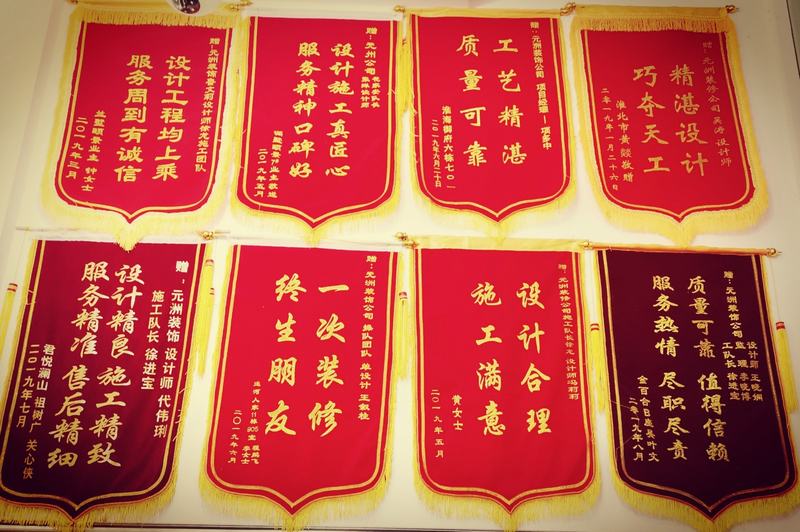 赠：元洲装饰鲁文莉设计师徐龙施工团队
设计工程均上乘
服务周到有诚信
兰墅颐景业主 钟女士
二〇一九年三月
赠：元州公司
设计施工真匠心
服务精神口碑好
二〇一九年五月
赠：元洲装饰公司 项目经理—项多中
工艺精湛
质量可靠
淮海御府六栋七〇一
二〇一九年六月二十日
赠：元洲装修公司 吴涛 设计师
精湛设计
巧夺天工
淮北市黄燚敬赠
二零一九年一月二十六日
赠：元洲装饰 设计师 代伟琍
施工队长 徐进宝
设计精良 施工精致
服务精准 售后精细
君悦澜山 祖树广 关心侠
二〇一九年七月
赠：元洲装饰公司
一次装修
终生朋友
二〇一九年六月
赠：元洲装修公司施工队长徐龙 设计师冯莉莉
设计合理
施工满意
黄女士
二〇一九年五月
赠：元洲装饰公司
工队长 徐进宝
质量可靠 值得信赖
服务热情 尽职尽责
二零一九年八月